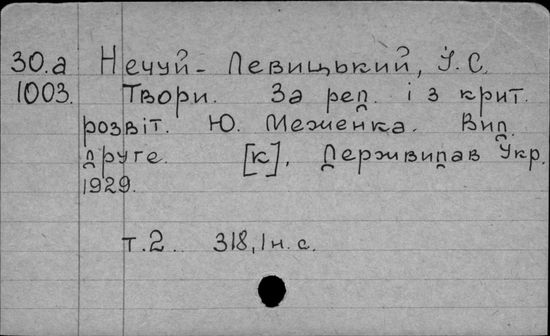 30.а Нечуй-Левицький, І. С.
1003. Твори. За ред. і з крит.
розвіт. Ю. Меженка. Вид.
друге. [К], Держвидав Укр.
1929.
т. 2. 318, 1 н. с.